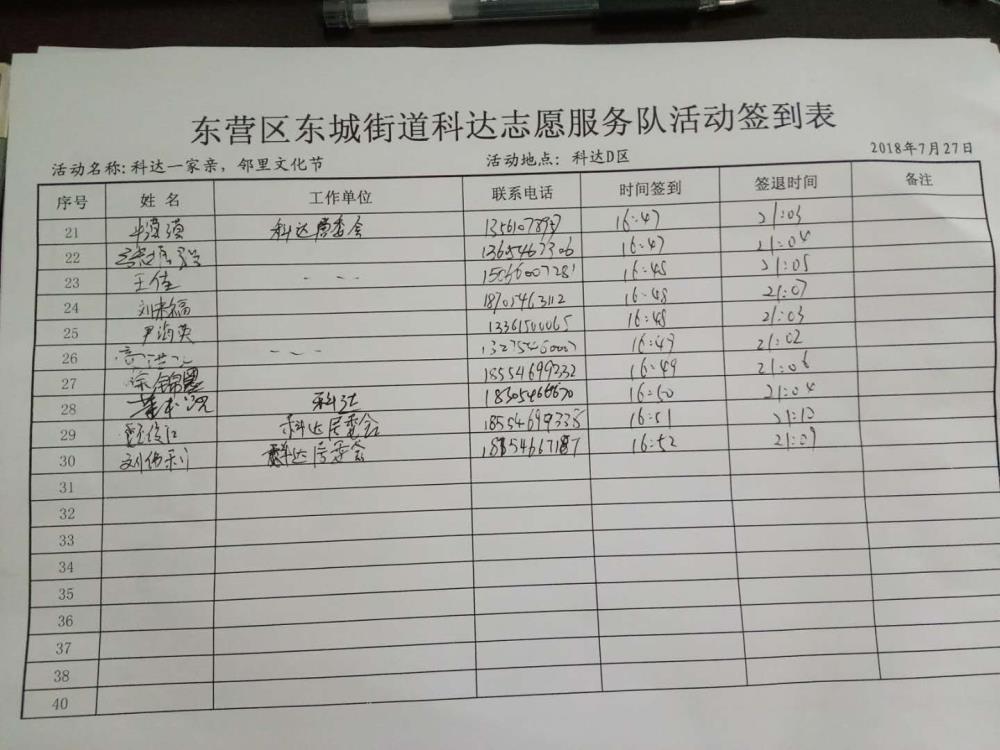 东营区东城街道科达志愿服务队活动签到表
活动名称：科达一家亲，邻里文化节 活动地点：科达D区 2018年7月27日
序号 姓名 工作单位 联系电话 时间签到 签退时间 备注
21 科达居委会 16:47 21:03
22 13654673706 16:47 21:04
23 王佳 16:48 21:05
24 18705463112 16:48 21:07
25 尹海英 13361500065 16:48 21:03
26 16:49 21:02
27 18554699232 16:49 21:06
28 科达 16:50 21:04
29 科达居委会 18554699338 16:51 21:10
30 科达居委会 16:52 21:09
31
32
33
34
35
36
37
38
40